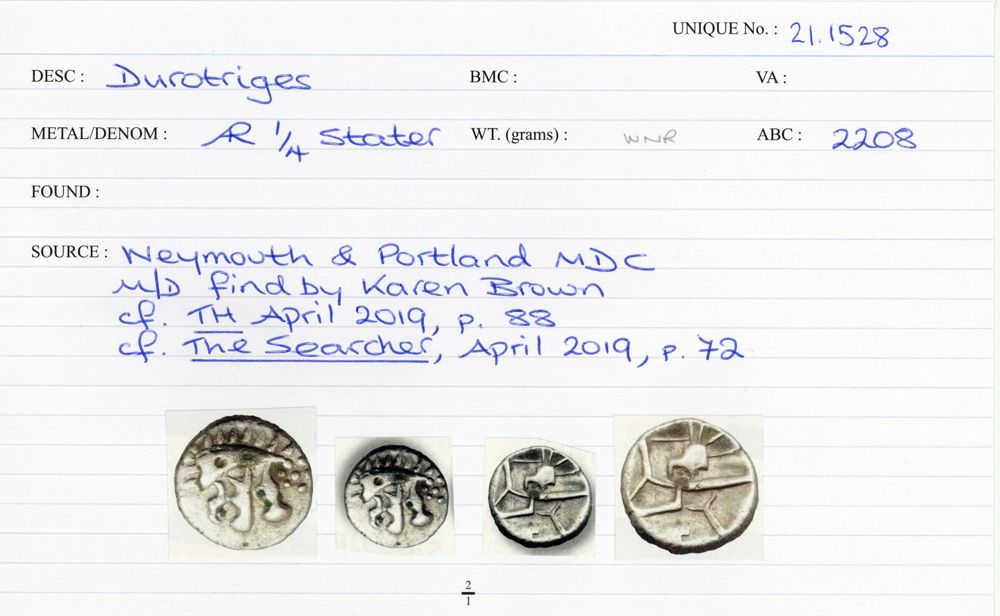 UNIQUE No. : 21.1528
DESC : Durotriges BMC : VA :
METAL/DENOM : AR 1/4 Stater WT. (grams) : WNR ABC : 2208
FOUND :
SOURCE : Weymouth & Portland MDC
M/D find by Karen Brown
cf. TH April 2019, p. 88
cf. The Searcher, April 2019, p. 72
2
1